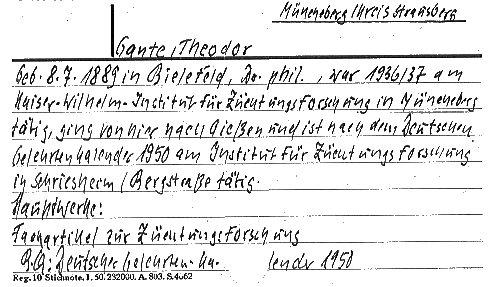 Müncheberg/Kreis Strausberg
Gante, Theodor
Geb. 8.7.1889 in Bielefeld, Dr. phil., war 1936/37 am
Kaiser-Wilhelm-Institut für Züchtungsforschung in Müncheberg
tätig, ging von hier nach Gießen und ist nach dem Deutschen
Gelehrtenkalender 1950 am Institut für Züchtungsforschung
in Schriesheim/Bergstraße tätig.
Hauptwerke:
Fachartikel zur Züchtungsforschung
B.Q.: Deutscher Gelehrten-Ka. lender 1950
Reg. 10 Stichnote. 1. 50. 232000. A. 803. S.4062